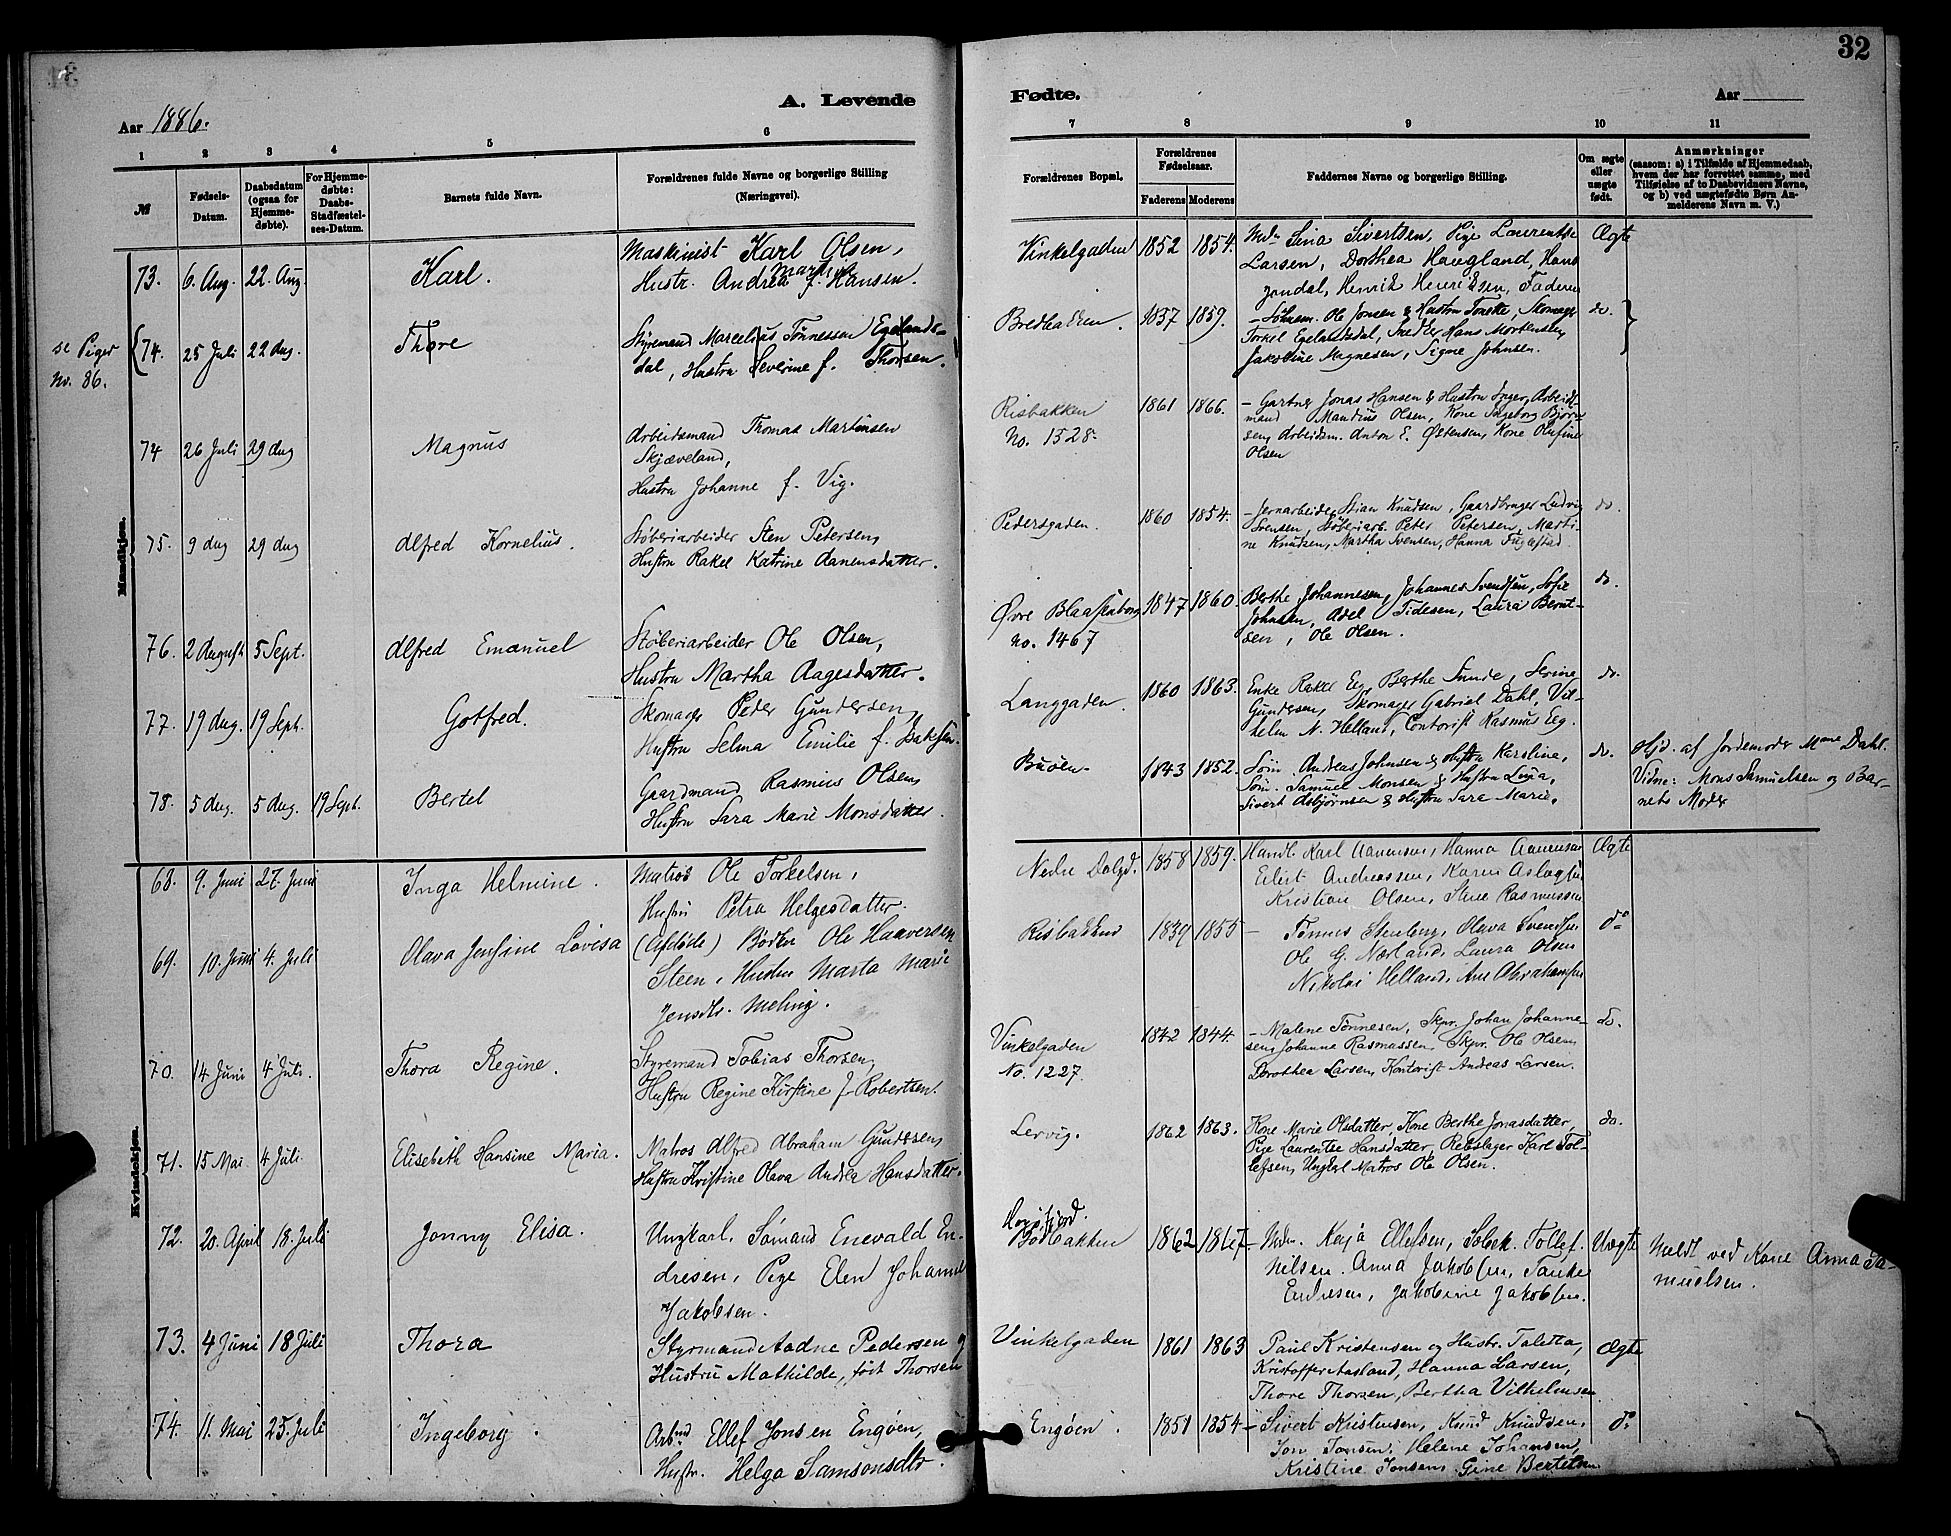 32
A. Levende
Fødte.
Aar 1886.
Aar
1 2 3 4 5 6
7 8 9 10 11
№
Fødsels-Datum.
Daabsdatum (ogsaa for Hjemmedøbte).
For Hjemmedøbte: Daabs-Stadfæstelses-Datum.
Barnets fulde Navn.
Forældrenes fulde Navne og borgerlige Stilling (Næringsvei).
Forældrenes Bopæl.
Forældrenes Fødselsaar.
Faderens Moderens
Faddernes Navne og borgerlige Stilling.
Om ægte eller uægte født.
Anmærkninger
(saasom: a) i Tilfælde af Hjemmedaab, hvem der har forrettet samme, med Tilføielse af to Daabsvidners Navne, og b) ved uægtefødte Børn Anmelderens Navn m. V.)
Mandkjøn.
73. 6. Aug. 22. Aug. Karl. Maskinist Karl Olsen,
Hustr. Andrea Marti f. Hansen.
Vinkelgaden 1852 1854. Mdm Sina Sivertsen, Pige Laurentse
Larsen, Dorthea Haugland, Hans
Jondal, Henrik Henriksen, Faderen
Ægte
se Piger
No. 86.
74. 25 Juli 22 Aug. Thore Styrmand Marcelius Tønnessen Egelands-
dal, Hustru Severine f. Thorsen.
Bredbakken. 1837 1859. – Sølnsm. Ole Jonsen & Hustru Tonette, Skomager
Torkel Egelandsdal, Snedker Hans Mortensen,
Jakobine Magnesen, Signe Johnsen.
do.
74 26 Juli 29 Aug Magnus Arbeidsmand Thomas Martinsen
Skjæveland,
Hustru Johanne f. Vig.
Risbakken
No. 1528.
1861 1866. – Gartner Jonas Hansen & Hustru Inger, Arbeids-
mand Mandius Olsen, Kone Ingeborg Bjørn-
sen, Arbeidsm. Anton E. Østensen, Kone Olufine
Olsen
75. 9 Aug 29 Aug Alfred Kornelius. Støberiarbeider Sten Petersen,
Hustru Rakel Katrine Aanensdatter.
Pedersgaden. 1860 1854. – Jernarbeider Stian Knudsen, Gaardbruger Ludvig
Svensen, Støberiarb. Peter Petersen, Marti-
ne Knudsen, Martha Svensen, Hanna Fuglestad
do.
76. 2 August 5 Sept. Alfred Emanuel Støberiarbeider Ole Olsen,
Hustru Martha Aagesdatter.
Øvre Blaasenborg
no. 1467
1847 1860. Berthe Johannesen, Johannes Svendsen, Sofie
Johnsen, Adel Tidesen, Laura Bernt-
sen, Ole Olsen.
do.
77. 19 Aug. 19 Sept. Gotfred. Skomager Peder Gundersen,
Hustru Selma Emilie f. Isaksen.
Langgaden. 1860 1863. Enke Rakel Eeg, Berthe Sunde, Serine
Gundersen, Skomager Gabriel Dahl, Vil-
helm N. Helland, Contorist Rasmus Eeg.
do.
78. 5 Aug. 5 Aug. 19 Sept. Bertel Gaardmand Rasmus Olsen,
Hustru Sara Marie Monsdatter.
Buøen 1843 1852. Søm. Andreas Johnsen & Hustru Karoline,
Søm. Samuel Monsen & Hustru Lina,
Sivert Asbjørnsen & Hustru Sara Marie.
do.
Hjd. af Jordemoder Mme Dahl.
Vidne: Mons Samuelsen og Bar-
nets Moder
Kvindekjøn.
68. 9. Juni 27. Juni Inga Helmine. Matros Ole Torkelsen,
Hustru Petra Helgesdatter.
Nedre Dalgd. 1858 1859. Handl. Karl Aanensen, Hanna Aanensen
Eilert Andreassen, Karen Aslagsen
Kristian Olsen, Stine Rasmussen
Ægte
69. 10. Juni 4. Juli Olava Jensine Lovisa (Afdøde) Bødker Ole Haaversen
Steen, Hustru Marta Marie
Jensdtr. Meling.
Risbakken 1839 1855 – Tønnes Stenberg, Olava Svendsen
Ole G. Nærland, Laura Olsen
Nikolai Helland, Ane Abrahamsen
do
70. 14 Juni 4 Juli. Thora Regine. Styrmand Tobias Thorsen,
Hustru Regine Kirstine f. Robertsen.
Vinkelgaden
No. 1227.
1842 1844. – Malene Tønnesen, Skpr. Johan Johanne-
sen, Johanne Rasmussen, Skpr. Ole Olsen,
Dorothea Larsen, Kontorist Andreas Larsen.
do.
71. 15 Mai 4 Juli. Elisebeth Hansine Maria. Matros Alfred Abraham Gundersen,
Hustru Kristine Olava Andrea Hansdatter.
Lervig. 1862 1863. Kone Marie Olsdatter, Kone Berthe Jonasdatter,
Pige Laurentse Hansdatter, Rebslager Karl Tol-
lefsen, Ungkal Matros Ole Olsen.
do.
72. 20. April 18. Juli Jonny Elisa. Ungkarl, Sømand Enevald En-
dresen, Pige Elen Johanne
Jakobsen.
Bødbakken 1862 1867 – Mdm. Kaja Ellefsen, Tollef.
Nilsen. Anna Jakobsen, Tanke
Endresen, Jakobine Jakobsen.
Uægte
Meldt ved Kone Anna Sa-
muelsen.
73. 4 Juni 18 Juli Thora Styrmand Aadne Pedersen og
Hustru Mathilde, født Thorsen
Vinkelgaden 1861 1863 Paul Kristensen og Hustr. Taletta,
Kristoffer Aasland, Hanna Larsen,
Thore Thorsen, Bertha Vilhelmsen
Ægte
74. 11. Mai 25. Juli Ingeborg. Arbmd Ellef Jonsen Engøen,
Hustr. Helga Samsonsdtr.
Engøen. 1851 1854 – Sivert Kristensen, Knud Knudsen,
Jon Jonsen, Helene Johansen,
Kristine Jonsen, Gine Bertelsen.
do